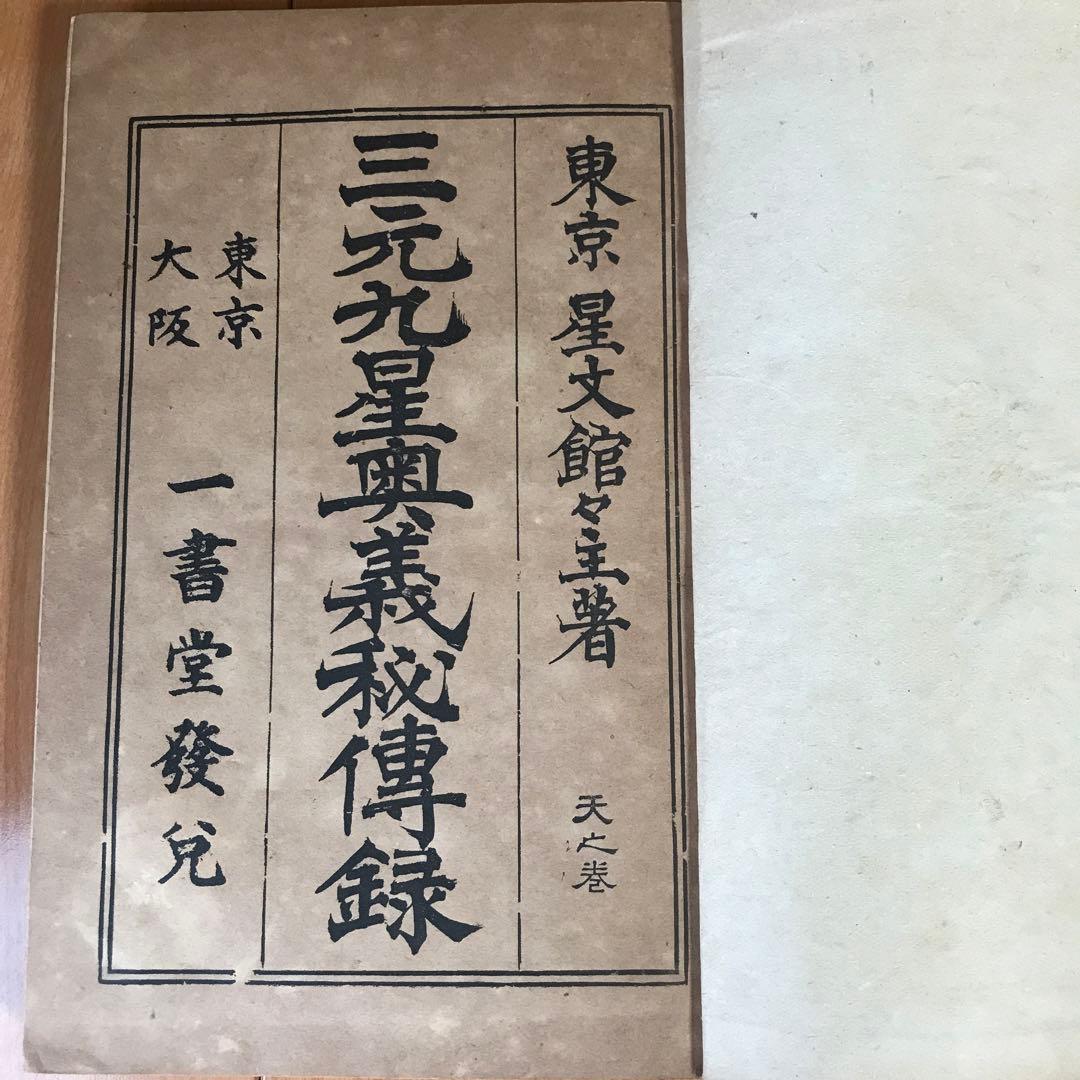 東京 星文館々主著 天之巻
三元九星奥義秘傳録
東京
大阪
一書堂發兌